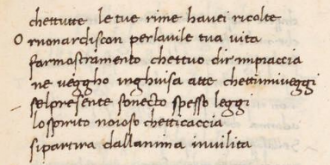 chettutte le tue rime havei ricolte
O rnonardiscon perlavile tua vita
farmostramento chettuo dir mipiaccia
ne veggho inghuisa atte chettumiveggi
selpresente sonecto spesso leggi
lospirito noioso chetticaccia
sipartira dallanima invilita